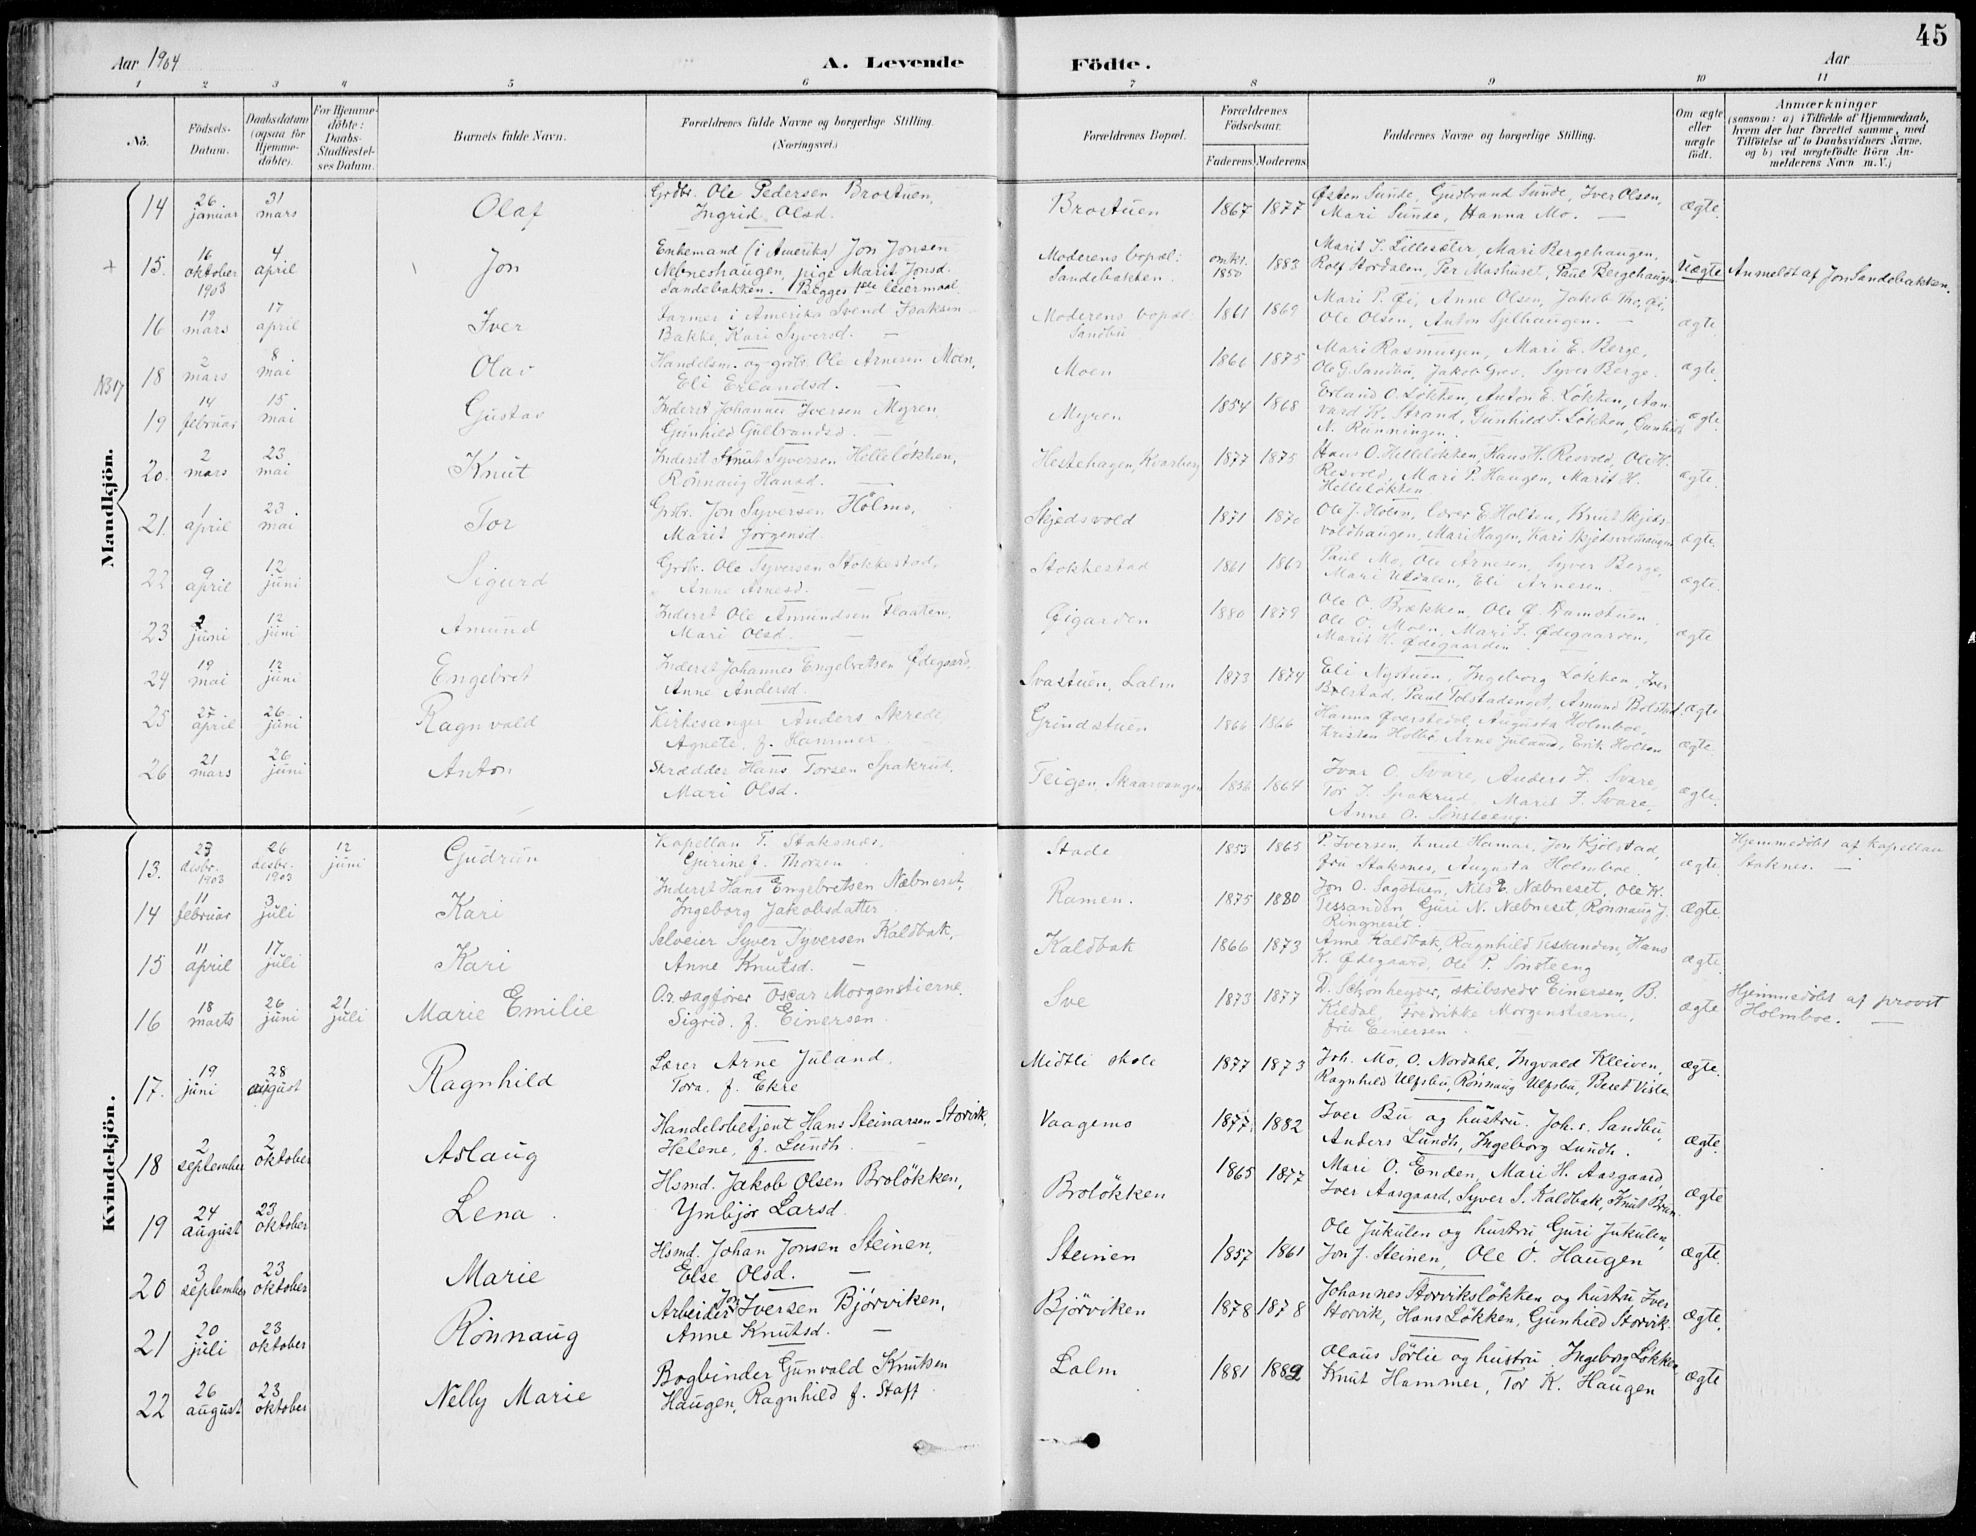 45
Aar 1904
A. Levende
Födte.
Aar
1 2 3 4 5 6 7 8 9 10 11
No.
Födsels-Datum.
Daabsdatum (ogsaa for Hjemme-döbte).
For Hjemme-döbte: Daabs-Stadfæstel-ses Datum.
Barnets fulde Navn.
Forældrenes fulde Navne og borgerlige Stilling. (Næringsvei.)
Forældrenes Bopæl.
Forældrenes Födselsaar.
Faderens Moderens
Faddernes Navne og borgerlige Stilling.
Om ægte eller uægte født.
Anmærkninger (saasom: a) i Tilfælde af Hjemmedaab, hvem der har forrettet samme, med Tilföielse af to Daabsvidners Navne, og b) ved uægtefödte Börn An-melderens Navn m. V.)
Mandkjön.
14 26 januar 31 mars Olaf Grdbr. Ole Pedersen Brostuen, Ingrid Olsd. Brostuen 1867 1877 Østen Sunde, Gudbrand Sunde, Iver Olsen, Mari Sunde, Hanna Mo. — ægte
15. 16 oktober 1903 4 april Jon Enkemand (i Amerika) Jon Jonsen Nebneshaugen, pige Marit Jonsd. Sandebakken. Begges 1ste leiermaal Moderens bopæl: Sandebakken. omkr. 1850 1883 Marit J. Lillesæter, Mari Bergehaugen, Rolf Stordalen, Per Mashuset, Paul Bergehaugen Uægte Anmeldt af Jon Sandebakken.
16 19 mars 17 april Iver Farmer i Amerika Svend Isaksen Bakke, Kari Syversd. — Moderens bopæl: Sandbu 1861 1869 Mari P. Øi, Anne Olsen, Jakob Mo, Ole Olsen, Anton Selhaugen. — ægte.
N317
18 2 mars 8 mai Olav Handelsm. og grdbr. Ole Arnesen Moen, Eli Erlandsd. — Moen 1866 1875 Mari Rasmussen, Mari E. Berge, Ole G. Sandbu, Jakob Grev. Syver Berge. ægte.
19 14 februar 15 mai Gustav Inderst Johannes Iversen Myren, Gunhild Gulbrandsd. — Myren 1854 1868 Erland O. Løkken, Anton E. Løkken, Aan-vard K. Strand, Gunhild J. Løkken, Gunhild N. Rønningen. ægte.
20. 2 mars 23 mai Knut Inderst Knut Syversen Helleløkken, Rønnaug Hansd. — Hestehagen, Kvarberg 1877 1875 Hans O. Helleløkken, Hans H. Resvold, Ole H. Resvold, Mari P. Haugen, Marit H. Helleløkken ægte.
21. 1 april 23 mai Tor Grdbr. Jon Syversen Holmo, Marit Jørgensd. Skjedsvold 1871 1870 Ole J. Holen, lærer E Holten, Knut Skjeds-voldhaugen, Mari Hagen, Kari Skjedsvoldhaugen ægte.
22 9 april 12 juni Sigurd Grdbr. Ole Syversen Stokkestad, Anne Arnesd. Stokkestad 1861 1862 Paul Mo, Ole Arnesen, Syver Berge, Mari Utdalen, Eli Arnesen. ægte.
23 2 juni 12 juni Amund Inderst Ole Amundsen Flaaten, Mari Olsd. — Øigarden 1880 1879 Ole O. Brækken, Ole Ø. Ramstuen, Ole O. Moen, Mari J. Ødegaarden, Marit H. Ødegaarden. ægte
24 19 mai 12 juni Engebret Inderst Johannes Engebretsen Ødegaard, Anne Andersd. Svastuen, Lalm 1873 1874 Eli Nystuen, Ingeborg Løkken, Iver Bolstad, Paul Tolstadenget, Amund Bolstad. ægte
25 27 april 26 juni Ragnvald Kirkesanger Anders Skrede, Agnete f. Hammer Grundstuen 1866 1866 Hanna Øverstedal, Augusta Holmboe, Kristen Holbø, Arne Juland, Erik Holten ægte.
26 21 mars 26 juni Anton Skrædder Hans Torsen Spakrud, Mari Olsd. Teigen, Skaarvangen 1856 1864 Ivar O. Svare, Anders J. Svare, Tor J. Spakrud, Marit J. Svare, Anne O. Sønsteeng. ægte.
Kvindekjön.
13. 23 desbr. 1903 26 desbr. 1903 12 juni Gudrun Kapellan T. Staksnæs, Gurine f. Thorsen Stade 1853 1865 P. Iversen, Knut Hamar, Jon Kjølstad, fru Staksnes, Augusta Holmboe. ægte. Hjemmedöbt af kapellan Staknes. —
14 11 februar 3 juli Kari Inderst Hans Engebretsen Næbneset, Ingeborg Jakobsdatter Ramen. 1875 1880 Jon O. Sagstuen, Nils E. Næbneset, Ole K. Tessanden Guri N. Næbneset, Rønnaug J. Ringneset. ægte.
15 11 april 17 juli Kari Selveier Syver Syversen Kaldbak, Anne Knutsd. — Kaldbak 1866 1873 Anne Kaldbak, Ragnhild Tessanden, Hans K. Ødegaard, Ole P. Sønsteeng ægte.
16 18 marts 26 juni 21 juli Marie Emilie O.r. sagfører Oscar Morgenstierne. Sigrid. f. Einersen Sve 1873 1877 D. Schønheyder, skibsreder Einersen, B. Kildal, Fredrikke Morgenstierne, fru Einersen. ægte Hjemmedöbt af provst Holmboe. —
17. 19 juni 28 august Ragnhild Lærer Arne Juland, Tora. f. Ekre Midtli skole 1877 1873 Joh. Mo, O. Nordahl, Ingvald Kleiven, Ragnhild Ulfsbu, Rønnaug Ulfsbu, Beret Viste ægte.
18 2 september 2 oktober Aslaug Handelsbetjent Hans Steinarsen Storvik, Helene, f. Lundh. — Vaagemo 1877. 1882 Iver Bu og hustru. Joh. s. Sandbu, Anders Lundh, Ingeborg Lundh. ægte.
19 24 august 23 oktober Lena. Hsmd. Jakob Olsen Broløkken, Ymbjør Larsd. Broløkken 1865 1877 Mari O. Enden, Mari H. Aasgaard, Iver Aasgaard, Syver S. Kaldbak, Knut Brun. ægte
20 3 september 23 oktober Marie Hsmd. Johan Jonsen Steinen, Else Olsd. — Steinen 1857 1861 Ole Jukulen og hustru, Guri Jukulen, Jon J. Steinen, Ole O. Haugen ægte.
21 20 juli 23 oktober Rønnaug Arbeider Jon Iversen Bjørviken, Anne Knutsd. — Bjørviken 1878 1878 Johannes Storviksløkken og hustru Iver Storvik, Hans Løkken, Gunhild Storvik. ægte.
22 26 august 23 oktober Nelly Marie Bogbinder Gunvald Knutsen Haugen, Ragnhild f. Staff Lalm 1881 1882 Olaus Sørlie og hustru. Ingeborg Løkken, Knut Hammer, Tor K. Haugen ægte